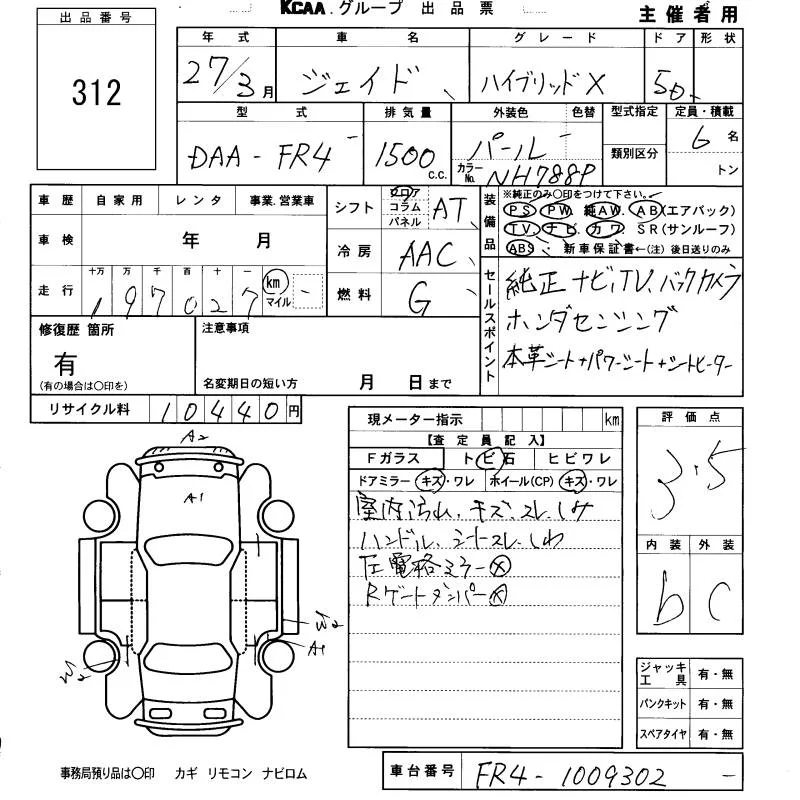 出品番号
312
KCAA.グループ 出品票
主催者用
年式 車名 グレード ドア 形状
27/3月 ジェイド ハイブリッドX 5D
型式 排気量 外装色 色替 型式指定 定員・積載
類別区分
DAA-FR4 1500c.c. パール 6名
カラーNo. NH788P トン
車歴 自家用 レンタ 事業.営業車
車検 年 月
走行 十万 万 千 百 十 一 km マイル
197027
シフト フロア コラム パネル AT
冷房 AAC
燃料 G
装備品
※純正のみ○印をつけて下さい。
PS PW 純AW. AB(エアバック)
TV. ナビ カワ SR(サンルーフ)
ABS 新車保証書←(注) 後日送りのみ
セールスポイント
純正ナビ、TV、バックカメラ
ホンダセンシング
本革シート+パワーシート+シートヒーター
修復歴 箇所
有
(有の場合は○印を)
注意事項
名変期日の短い方 月 日まで
リサイクル料 10440円
現メーター指示 km
【査定員記入】
Fガラス トビ石 ヒビワレ
ドアミラー キズ・ワレ ホイール(CP) キズ・ワレ
室内汚れ、キズ、スレ、シミ
ハンドル、シートスレ、しわ
左電格ミラー Ⓧ
Rゲートダンパー Ⓧ
評価点
3.5
内装 外装
b C
ジャッキ工具 有・無
パンクキット 有・無
スペアタイヤ 有・無
A2
A1
W2
A1
W2
事務局預り品は○印 カギ リモコン ナビロム
車台番号 FR4-1009302